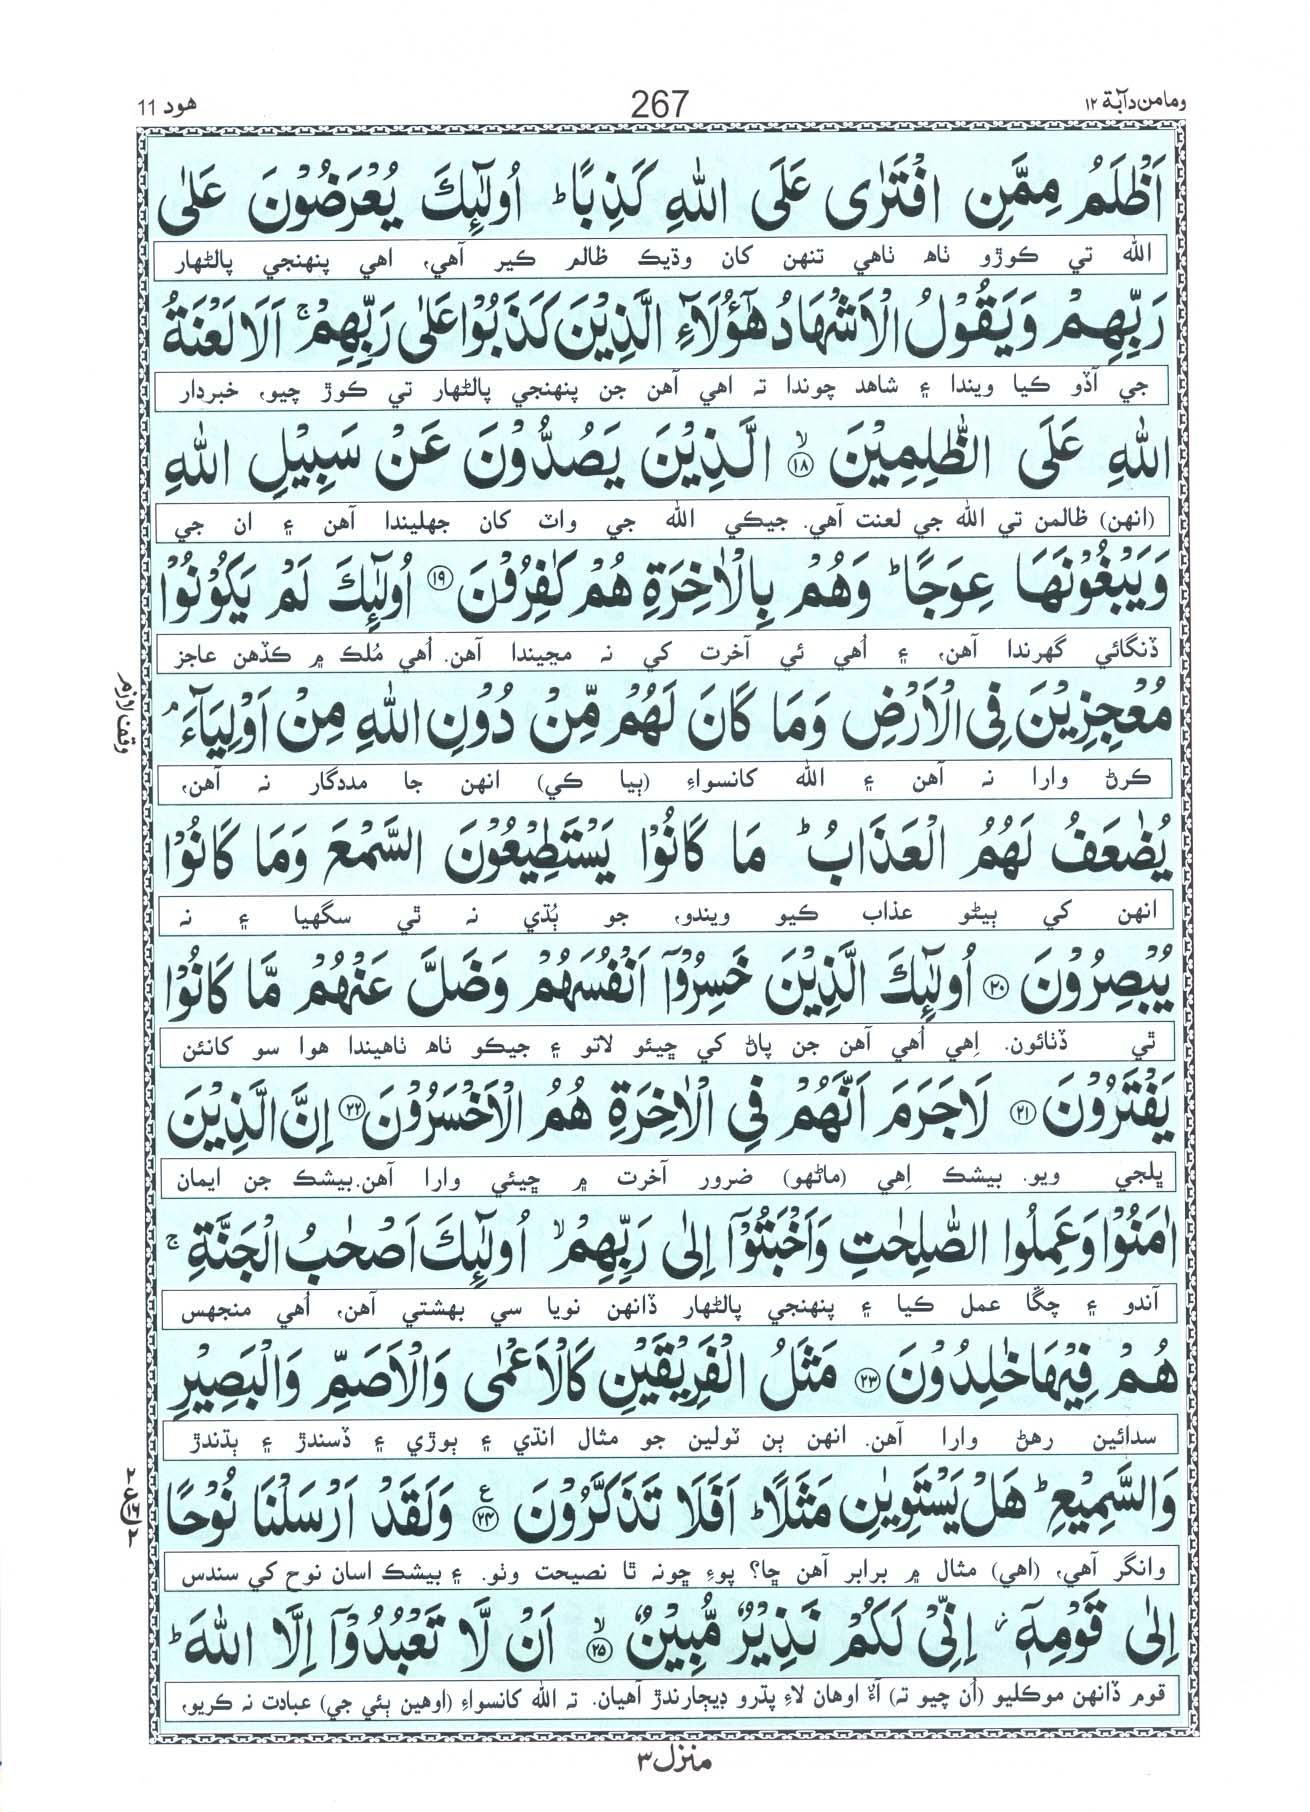 ومامن دآبة ١٢
267
هود 11
اَظْلَمُ مِمَّنِ افْتَرٰى عَلَى اللّٰهِ كَذِبًا ؕ اُولٰٓئِكَ يُعْرَضُوْنَ عَلٰى
الله تي ڪوڙو ٺاھ ٺاهي تنهن کان وڌيڪ ظالم ڪير آهي، اهي پنهنجي پالڻهار
رَبِّهِمْ وَيَقُوْلُ الْاَشْهَادُ هٰٓؤُلَآءِ الَّذِيْنَ كَذَبُوْا عَلٰى رَبِّهِمْ ۚ اَلَا لَعْنَةُ
جي آڏو ڪيا ويندا ۽ شاهد چوندا ته اهي آهن جن پنهنجي پالڻهار تي ڪوڙ چيو، خبردار
اللّٰهِ عَلَى الظّٰلِمِيْنَ ۙ﴿۱۸﴾ الَّذِيْنَ يَصُدُّوْنَ عَنْ سَبِيْلِ اللّٰهِ
(انهن) ظالمن تي الله جي لعنت آهي. جيڪي الله جي واٽ کان جهليندا آهن ۽ ان جي
وَيَبْغُوْنَهَا عِوَجًا ؕ وَهُمْ بِالْاٰخِرَةِ هُمْ كٰفِرُوْنَ ﴿۱۹﴾ اُولٰٓئِكَ لَمْ يَكُوْنُوْا
ڏنگائي گهرندا آهن، ۽ اُهي ئي آخرت کي نه مڃيندا آهن. اُهي مُلڪ ۾ ڪڏهن عاجز
مُعْجِزِيْنَ فِى الْاَرْضِ وَمَا كَانَ لَهُمْ مِّنْ دُوْنِ اللّٰهِ مِنْ اَوْلِيَآءَ ۘ
وقف لازم
ڪرڻ وارا نه آهن ۽ الله کانسواءِ (ٻيا ڪي) انهن جا مددگار نه آهن،
يُضٰعَفُ لَهُمُ الْعَذَابُ ؕ مَا كَانُوْا يَسْتَطِيْعُوْنَ السَّمْعَ وَمَا كَانُوْا
انهن کي ٻيڻو عذاب ڪيو ويندو، جو ٻُڌي نہ ٿي سگهيا ۽ نہ
يُبْصِرُوْنَ ﴿۲۰﴾ اُولٰٓئِكَ الَّذِيْنَ خَسِرُوْۤا اَنْفُسَهُمْ وَضَلَّ عَنْهُمْ مَّا كَانُوْا
ٿي ڏٺائون. اِهي اُهي آهن جن پاڻ کي ڇيئو لاتو ۽ جيڪو ٺاھ ٺاهيندا هوا سو کانئن
يَفْتَرُوْنَ ﴿۲۱﴾ لَا جَرَمَ اَنَّهُمْ فِى الْاٰخِرَةِ هُمُ الْاَخْسَرُوْنَ ﴿۲۲﴾ اِنَّ الَّذِيْنَ
ڀلجي ويو. بيشڪ اِهي (ماڻهو) ضرور آخرت ۾ ڇيئي وارا آهن.بيشڪ جن ايمان
اٰمَنُوْا وَعَمِلُوا الصّٰلِحٰتِ وَاَخْبَتُوْۤا اِلٰى رَبِّهِمْ ۙ اُولٰٓئِكَ اَصْحٰبُ الْجَنَّةِ ۚ
آندو ۽ چڱا عمل ڪيا ۽ پنهنجي پالڻهار ڏانهن نويا سي بهشتي آهن، اُهي منجهس
هُمْ فِيْهَا خٰلِدُوْنَ ﴿۲۳﴾ مَثَلُ الْفَرِيْقَيْنِ كَالْاَعْمٰى وَالْاَصَمِّ وَالْبَصِيْرِ
سدائين رهڻ وارا آهن. انهن ٻن ٽولين جو مثال انڌي ۽ ٻوڙي ۽ ڏسندڙ ۽ ٻڌندڙ
وَالسَّمِيْعِ ؕ هَلْ يَسْتَوِيٰنِ مَثَلًا ؕ اَفَلَا تَذَكَّرُوْنَ ﴿۲۴﴾ ع وَلَقَدْ اَرْسَلْنَا نُوْحًا
وانگر آهي، (اهي) مثال ۾ برابر آهن ڇا؟ پوءِ ڇونہ ٿا نصيحت وٺو. ۽ بيشڪ اسان نوح کي سندس
اِلٰى قَوْمِهٖۤ ۫ اِنِّىْ لَكُمْ نَذِيْرٌ مُّبِيْنٌ ۙ﴿۲۵﴾ اَنْ لَّا تَعْبُدُوْۤا اِلَّا اللّٰهَ ؕ
قوم ڏانهن موڪليو (اُن چيو ته) آءٌ اوهان لاءِ پڌرو ڊيڄاريندڙ آهيان. ته الله کانسواءِ (اوهين ٻئي جي) عبادت نہ ڪريو،
منزل ۳